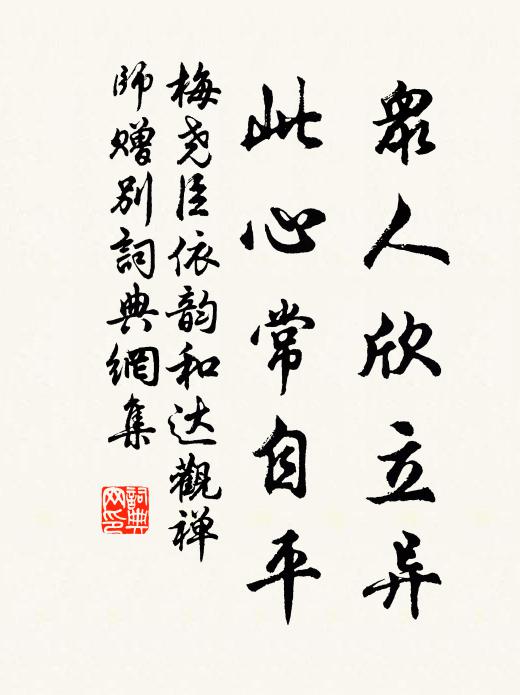 眾人欣立异
此心常自平
梅尧臣依韵和达觀禅
师赠别詞典網集
詞典
网印